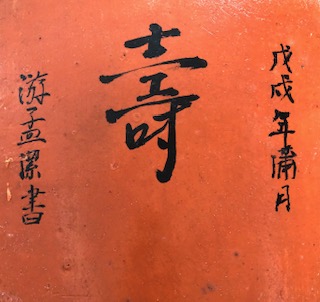 戊戌年蒲月
壽
游孟潔書